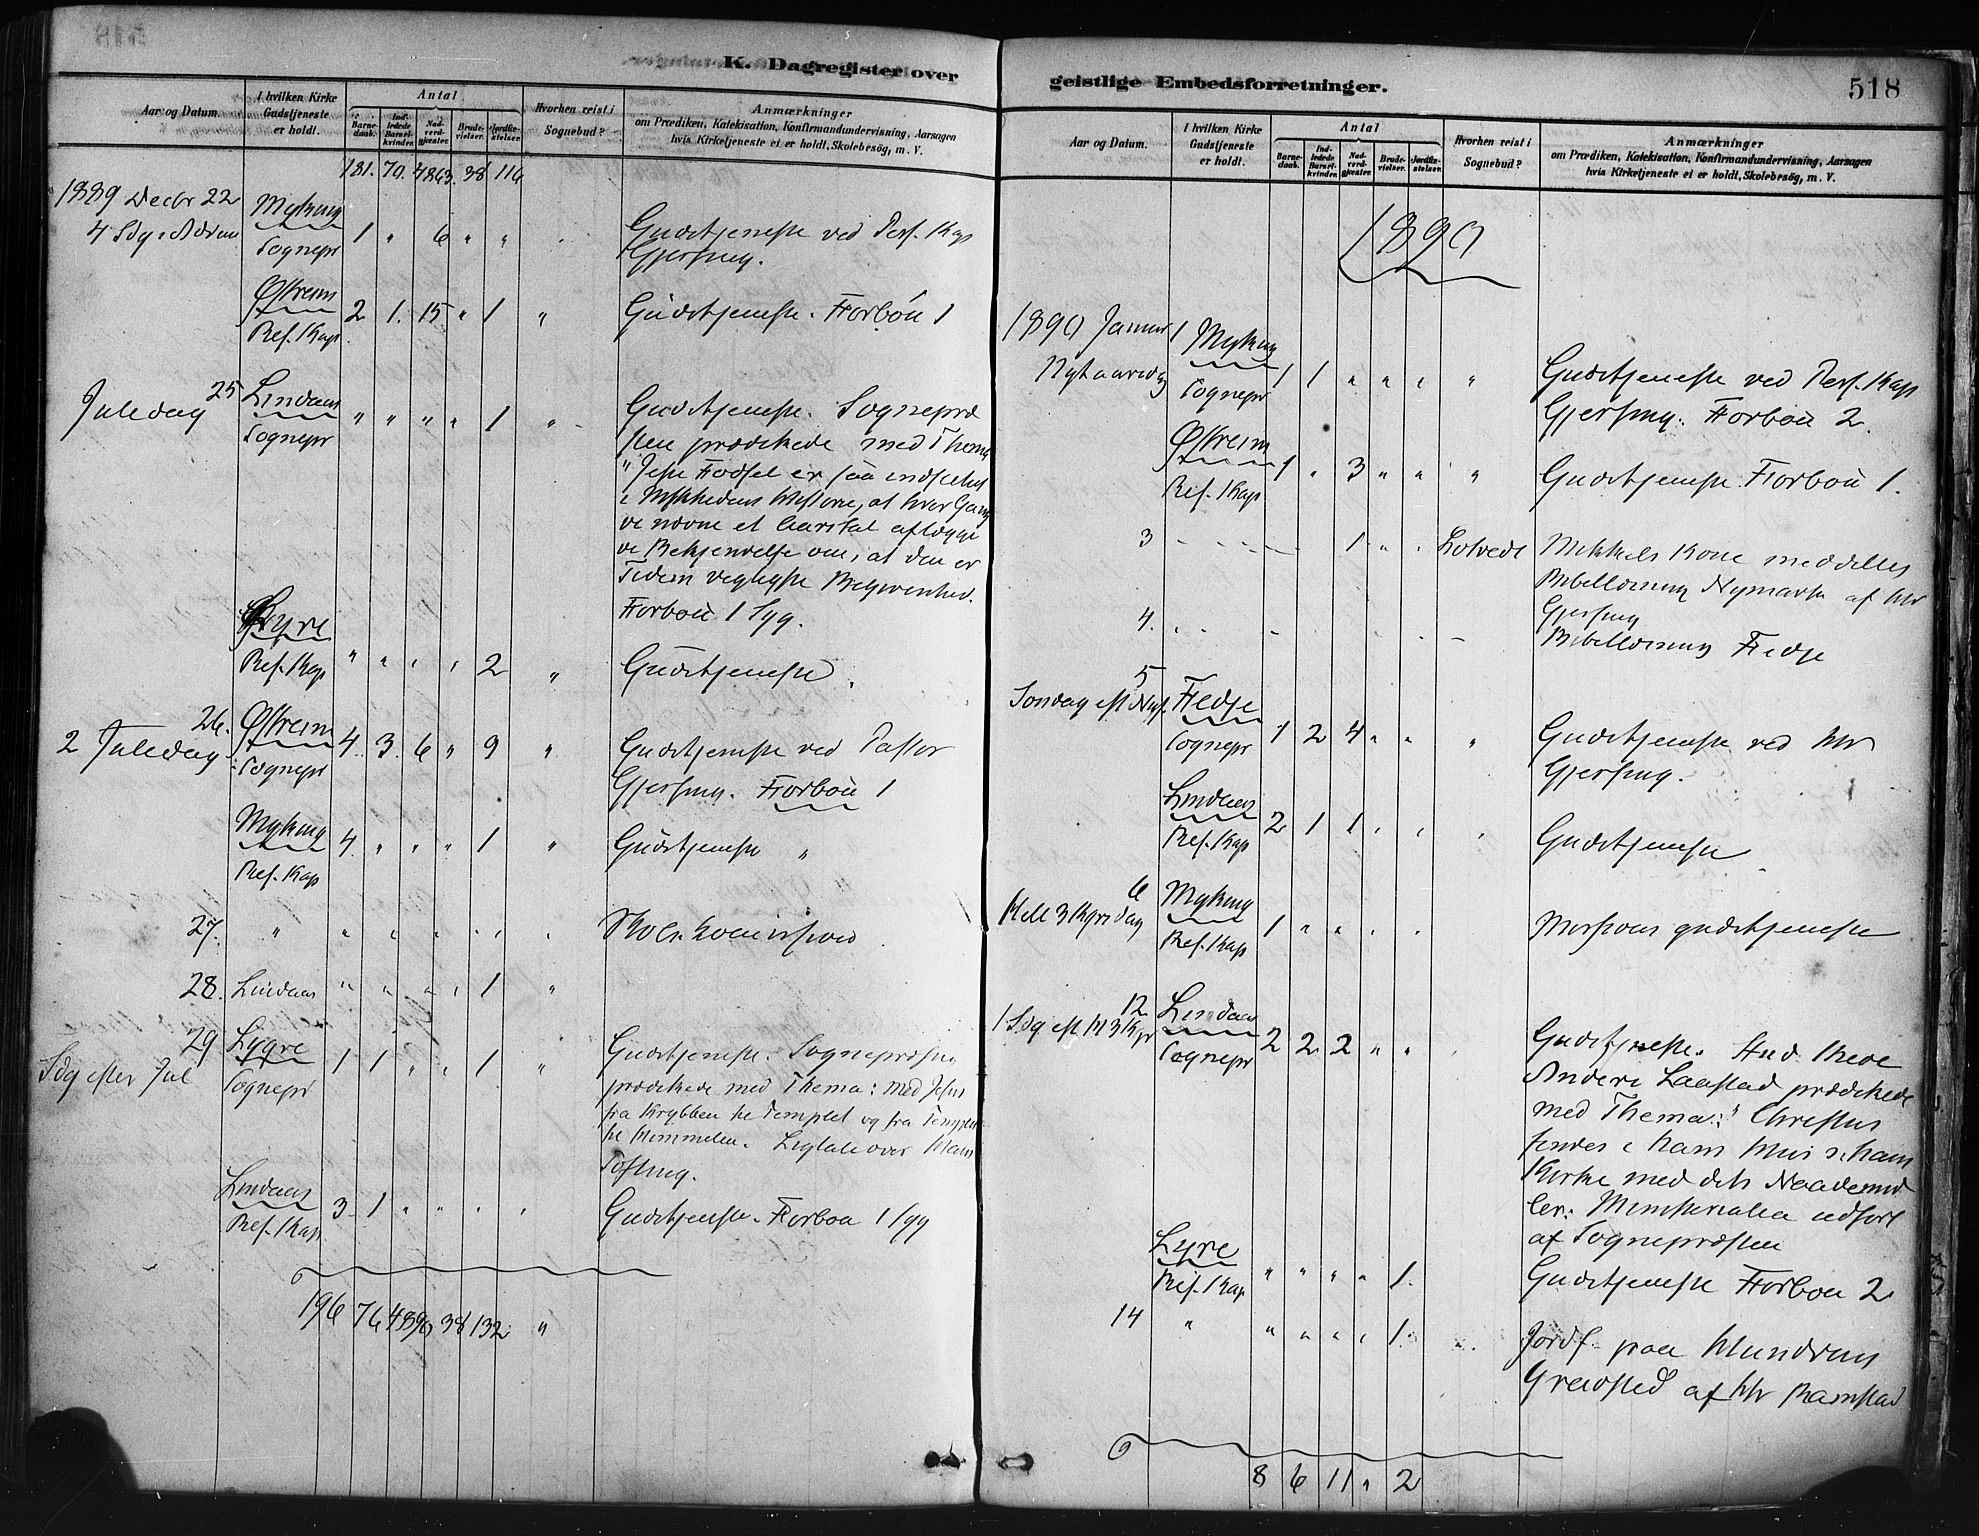 K. Dagregister over
Aar og Datum.
I hvilken Kirke Gudstjeneste er holdt.
Antal
Barnedaab.
Indledede Barselkvinder.
Nadverdgjester.
Brudevielser.
Jordfæstelser.
Hvorhen reist i Sognebud?
Anmærkninger
om Prædiken, Katekisation, Konfirmandundervisning, Aarsagen
hvis Kirketjeneste ei er holdt, Skolebesög, m. V.
181. 70. 4863. 38 116
1889 Decbr 22 Myking
4 Sdg i Advent Sognepr 1 " 6 " " Gudstjeneste ved Pers. Kap
Gjersing.
Østreim
Res. Kap. 2 1. 15 " 1 " Gudstjeneste. Forbøn 1
25 Lindaas
Juledag Sognepr " " " " 1 " Gudstjeneste. Sognepræ
sten prædikede med Thema
"Jesu Fødsel er saa indflettet
i Historie, at hver Gang
vi nævne et Aarstal aflægge
vi Bekjendelse om, at den er
Tidens vigtigste Begivenhed.
Forbøn 1 Syg.
Lygre
Res. Kap " " " " 2 " Gudstjeneste
26. Østreim
2 Juledag Sognepr 4. 3. 6 " 9 " Gudstjeneste ved Pastor
Gjersing. Forbøn 1
Myking
Res. Kap 4. " " " 1 " Gudstjeneste "
27. " " " " " " Skolekommission
28. Lindaas " " " " 1 "
29 Lygre
Sdg efter Jul Sognepr 1 1 " " 1 " Gudstjeneste. Sognepræsten
prædikede med Thema: Med Jesus
fra Krybben til Templet og fra Templet
til Himmelen. Ligtale over Hans
Tofting.
Lindaas
Res. Kap 3 1 " " " Gudstjeneste. Forbøn 1 Syg
196 76 4890 38 132 "
geistlige Embedsforretninger.
518
Aar og Datum.
I hvilken Kirke Gudstjeneste er holdt.
Antal
Barnedaab.
Indledede Barselkvinder.
Nadverdgjester.
Brudevielser.
Jordfæstelser.
Hvorhen reist i Sognebud?
Anmærkninger
om Prædiken, Katekisation, Konfirmandundervisning, Aarsagen
hvis Kirketjeneste ei er holdt, Skolebesög, m. V.
1890
1890 Januar 1 Myking
Nytaarsdag Sognepr 1 1 " " " " Gudstjeneste ved Pers. Kap
Gjersing. Forbøn 2.
Østreim
Res. Kap 1 " 3 " " " Gudstjeneste Forbøn 1.
3 1 " Lotvedt Mikkels Kone meddeltes
Bibellæsning Nymark af Hr
Gjersing
4. Bibellæsning Fedje
5 Fedje
Søndag eft Nyt. Sognepr 1 2 4 " " " Gudstjeneste ved Hr
Gjersing.
Lindaas
Res. Kap 2 1 1 " " Gudstjeneste
6 Myking
Hell 3 Kgrs dag Res. Kap 1 " " " Missions gudstjeneste
12 Lindaas
1 Sdg eft H 3 Kgr Sognepr 2 2 2 " " Gudstjeneste.
Laastad prædikede
med Thema: "Christus
findes i hans Hus i hans
Kirke med dets Naademid
ler. Ministerialia udført
af Sognepræsten
Lygre
Res. Kap " " " " 1. Gudstjeneste Forbøn 2
14 " " " " " 1. Jordf. paa Hundvin
Gravsted af Hr Ramstad
8 6 11 " 2